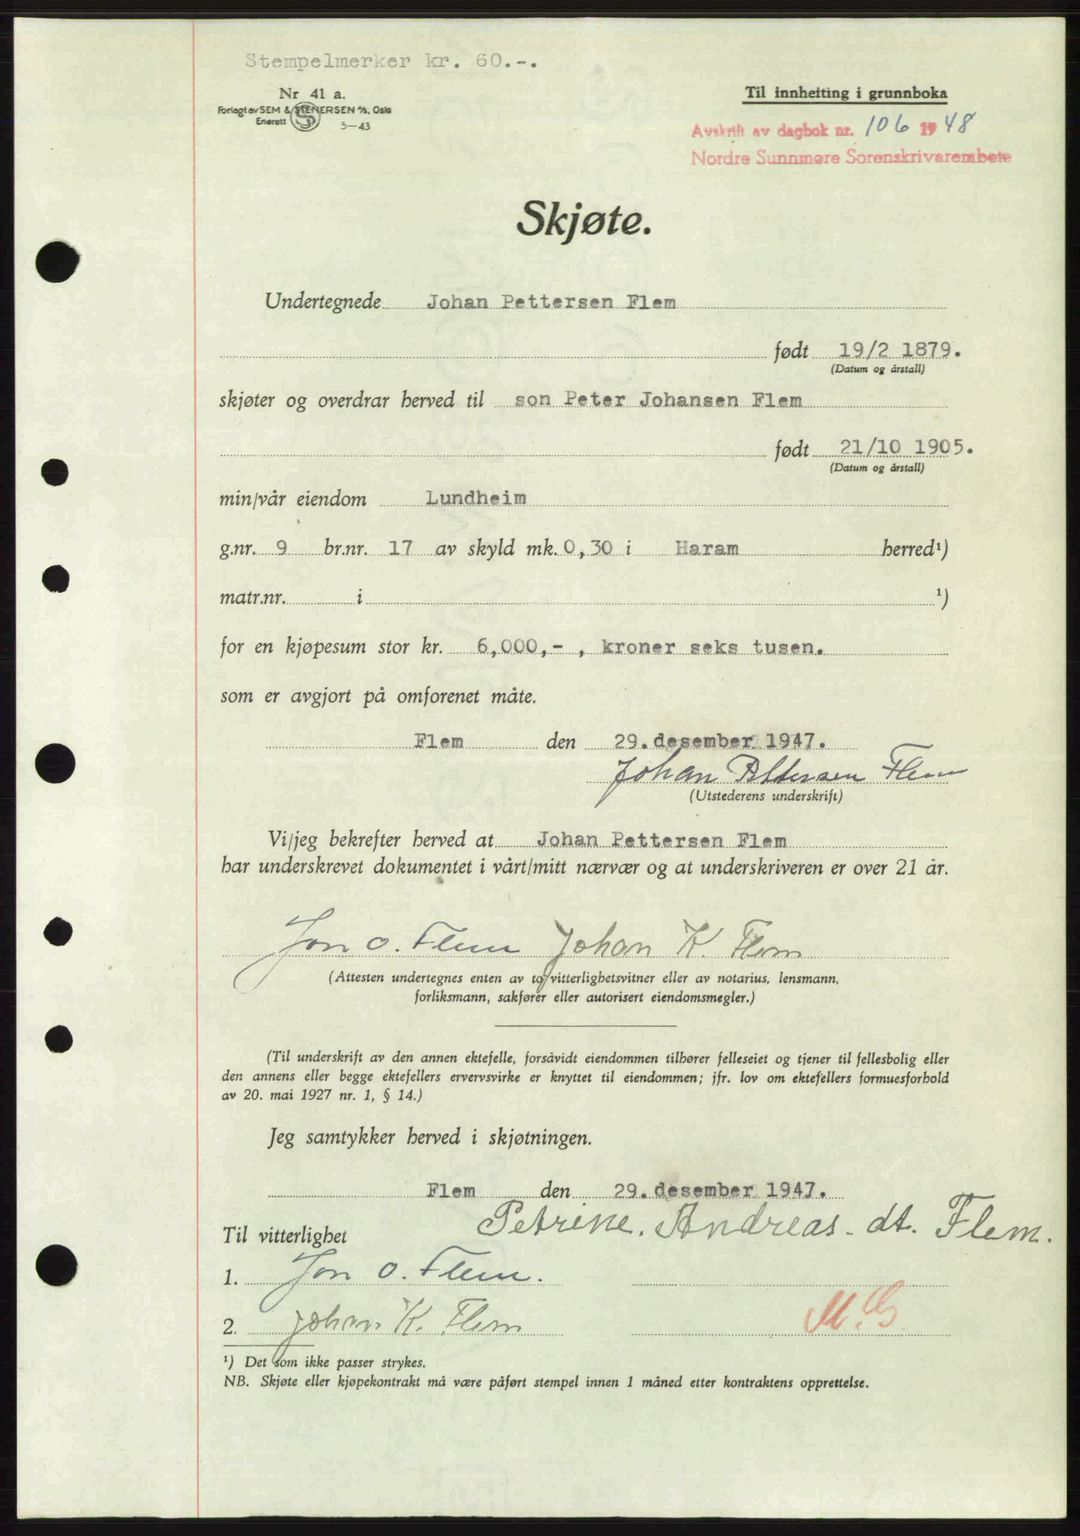 Stempelmerker kr. 60.-.
Nr 41 a.
Forlagt av SEM & STENERSEN A/S, Oslo
Enerett S 5-43
Til innhefting i grunnboka
Avskrift av dagbok nr. 106 1948
Nordre Sunnmøre Sorenskrivarembete
Skjøte.
Undertegnede Johan Pettersen Flem
født 19/2 1879.
(Datum og årstall)
skjøter og overdrar herved til son Peter Johansen Flem
født 21/10 1905.
(Datum og årstall)
min/vår eiendom Lundheim
g.nr. 9 br.nr. 17 av skyld mk. 0,30 i Haram herred¹)
matr.nr. i ¹)
for en kjøpesum stor kr. 6,000,- , kroner seks tusen.
som er avgjort på omforenet måte.
Flem den 29. desember 1947.
Johan Pettersen Flem
(Utstederens underskrift)
Vi/jeg bekrefter herved at Johan Pettersen Flem
har underskrevet dokumentet i vårt/mitt nærvær og at underskriveren er over 21 år.
Jon O. Flem Johan K. Flem
(Attesten undertegnes enten av to vitterlighetsvitner eller av notarius, lensmann,
forliksmann, sakfører eller autorisert eiendomsmegler.)
(Til underskrift av den annen ektefelle, forsåvidt eiendommen tilhører felleseiet og tjener til fellesbolig eller
den annens eller begge ektefellers ervervsvirke er knyttet til eiendommen; jfr. lov om ektefellers formuesforhold
av 20. mai 1927 nr. 1, § 14.)
Jeg samtykker herved i skjøtningen.
Flem den 29. desember 1947.
Petrine. Andreas. dt. Flem.
Til vitterlighet
1. Jon O. Flem.
2. Johan K. Flem
M.G
¹) Det som ikke passer strykes.
NB. Skjøte eller kjøpekontrakt må være påført stempel innen 1 måned etter kontraktens opprettelse.